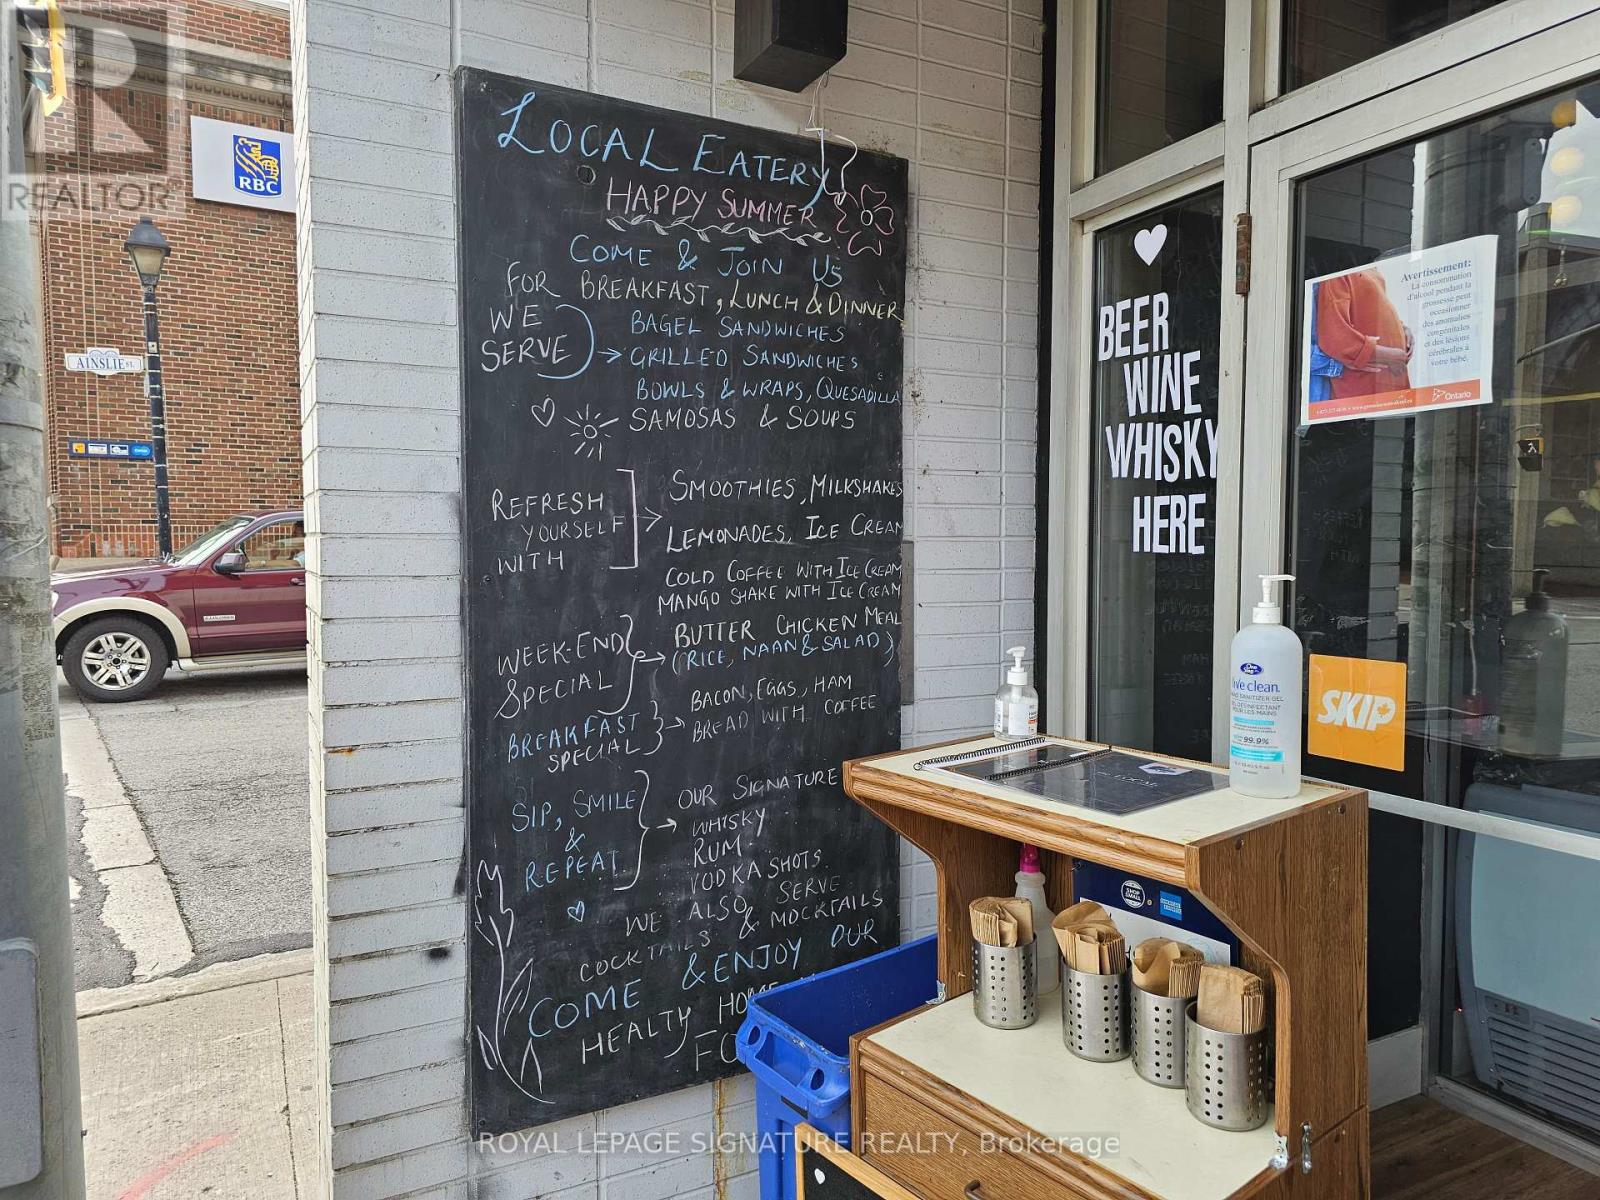 REALTOR®
RBC
AINSLIE ST.
LOCAL EATERY
HAPPY SUMMER
COME & JOIN US
FOR BREAKFAST, LUNCH & DINNER
WE
SERVE
BAGEL SANDWICHES
GRILLED SANDWICHES
BOWLS & WRAPS, QUESADILLA
SAMOSAS & SOUPS
REFRESH
YOURSELF
WITH
SMOOTHIES, MILKSHAKES
LEMONADES, ICE CREAM
COLD COFFEE WITH ICE CREAM
MANGO SHAKE WITH ICE CREAM
WEEK-END
SPECIAL
BUTTER CHICKEN MEAL
(RICE, NAAN & SALAD)
BREAKFAST
SPECIAL
BACON, EGGS, HAM
BREAD WITH COFFEE
SIP, SMILE
&
REPEAT
OUR SIGNATURE
WHISKY
RUM
VODKA SHOTS
WE ALSO SERVE
COCKTAILS & MOCKTAILS
COME & ENJOY OUR
HEALTHY
BEER
WINE
WHISKY
HERE
Avertissement:
La consommation
d'alcool pendant la
grossesse peut
occasionner
des anomalies
congénitales
et des lésions
cérébrales à
votre bébé.
Ontario
live clean.
99.9%
SKIP
LOCAL
SHOP
SMALL
ROYAL LEPAGE SIGNATURE REALTY, Brokerage